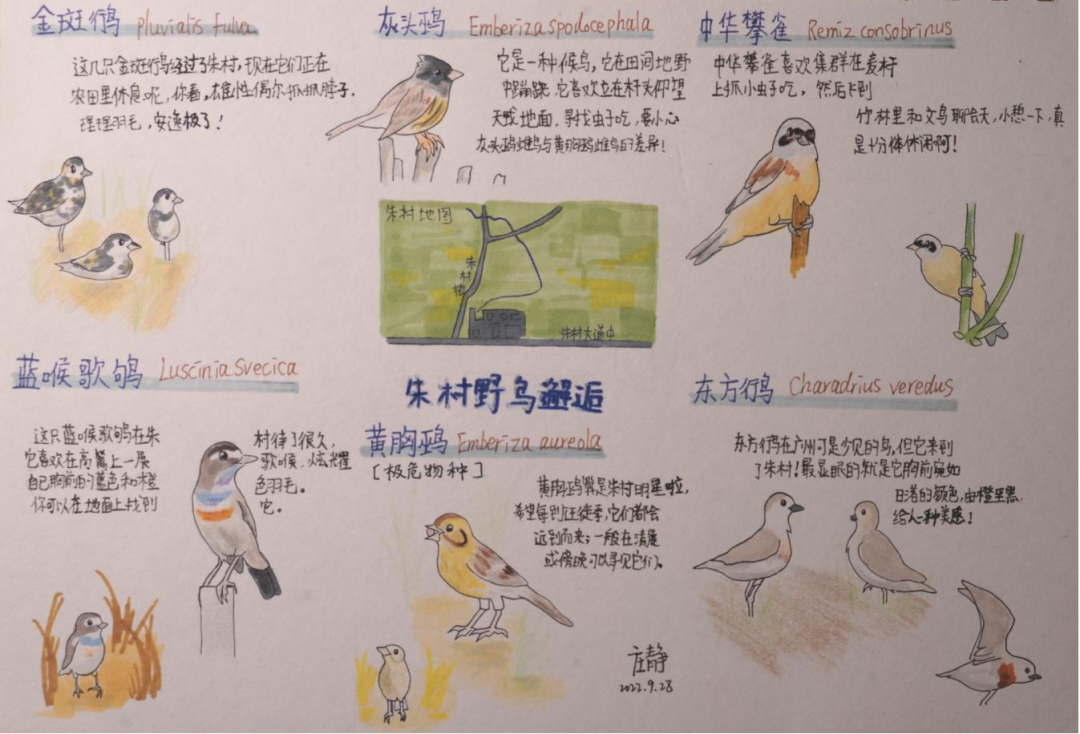 金斑鸻 Pluvialis fulva
这几只金斑鸻经过了朱村,现在它们正在
农田里休息呢,你看,雄性偶尔抓抓脖子.
理理羽毛,安逸极了!
灰头鹀 Emberiza spodocephala
它是一种候鸟,它在田间地野
中蹦跳.它喜欢立在杆头仰望
天或地面.寻找虫子吃,要小心
灰头鹀雌鸟与黄胸鹀雌鸟的差异!
中华攀雀 Remiz consobrinus
中华攀雀喜欢集群在麦杆
上抓小虫子吃,然后卡到
竹林里和文鸟聊会天,小憩一下,真
是十分休闲啊!
朱村地图
朱村街
朱村大道中
朱村野鸟邂逅
蓝喉歌鸲 Luscinia Svecica
这只蓝喉歌鸲在朱村待了很久,
它喜欢在高蒿上一展歌喉.炫耀
自己胸前的蓝色和橙色羽毛。
你可以在地面上找到它。
黄胸鹀 Emberiza aureola
[极危物种]
黄胸鹀算是朱村明星啦,
希望每到迁徙季,它们都会
远到而来;一般在清晨
或傍晚可以寻见它们。
东方鸻 Charadrius veredus
东方鸻在广州可是少见的鸟,但它来到
了朱村!最显眼的就是它胸前宛如
日落的颜色,由橙至黑,
给人一种美感!
庄静
2022.9.28